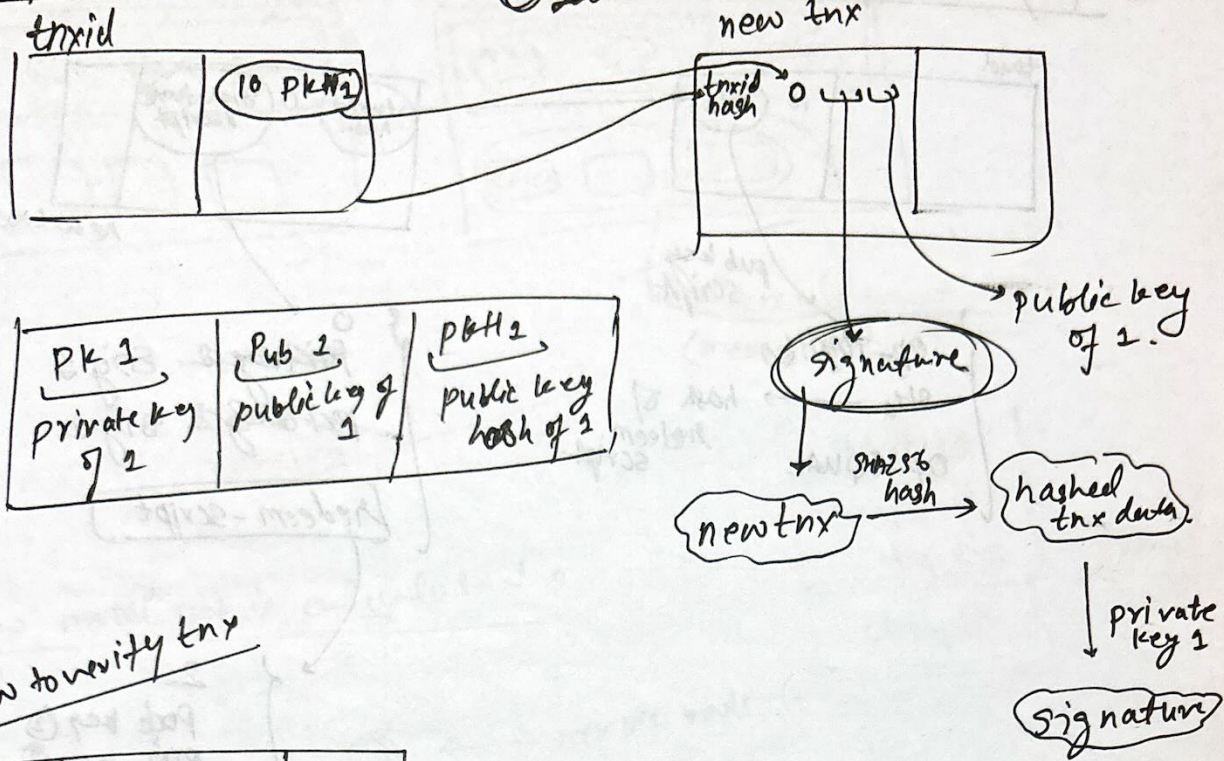 tnxid
new tnx
10 PKH1
tnxid
hash
0
public key
of 1.
signature
PK 1
private key
of 1
Pub 1
public key of
1
PKH1
public key
hash of 1
new tnx
SHA256
hash
hashed
tnx data.
private
key 1
signature
to verify tnx